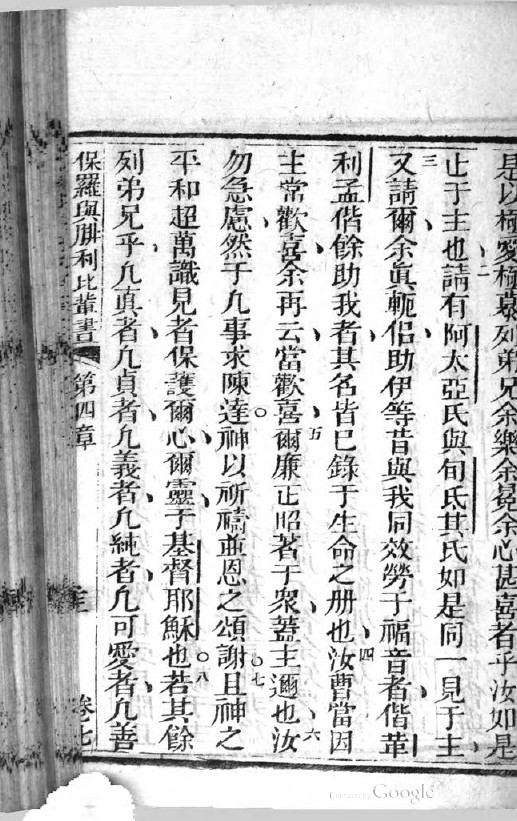 是以極愛極慕列弟兄余樂余冕余心甚喜者乎汝如是
二
止于主也請有阿太亞氏與旬氐其氏如是同一見于主
三
又請爾余眞軛侶助伊等昔與我同效勞于福音者偕革
利孟偕餘助我者其名皆已錄于生命之册也汝曹當因
四
主常歡喜余再云當歡喜爾廉正昭著于衆蓋主邇也汝
五
六
勿急慮然于凡事求陳達神以祈禱並恩之頌謝且神之
七
平和超萬識見者保護爾心爾靈于基督耶穌也若其餘
八
列弟兄乎凡真者凡貞者凡義者凡純者凡可愛者凡善
保羅與腓利比輩書 第四章 卷七
Google